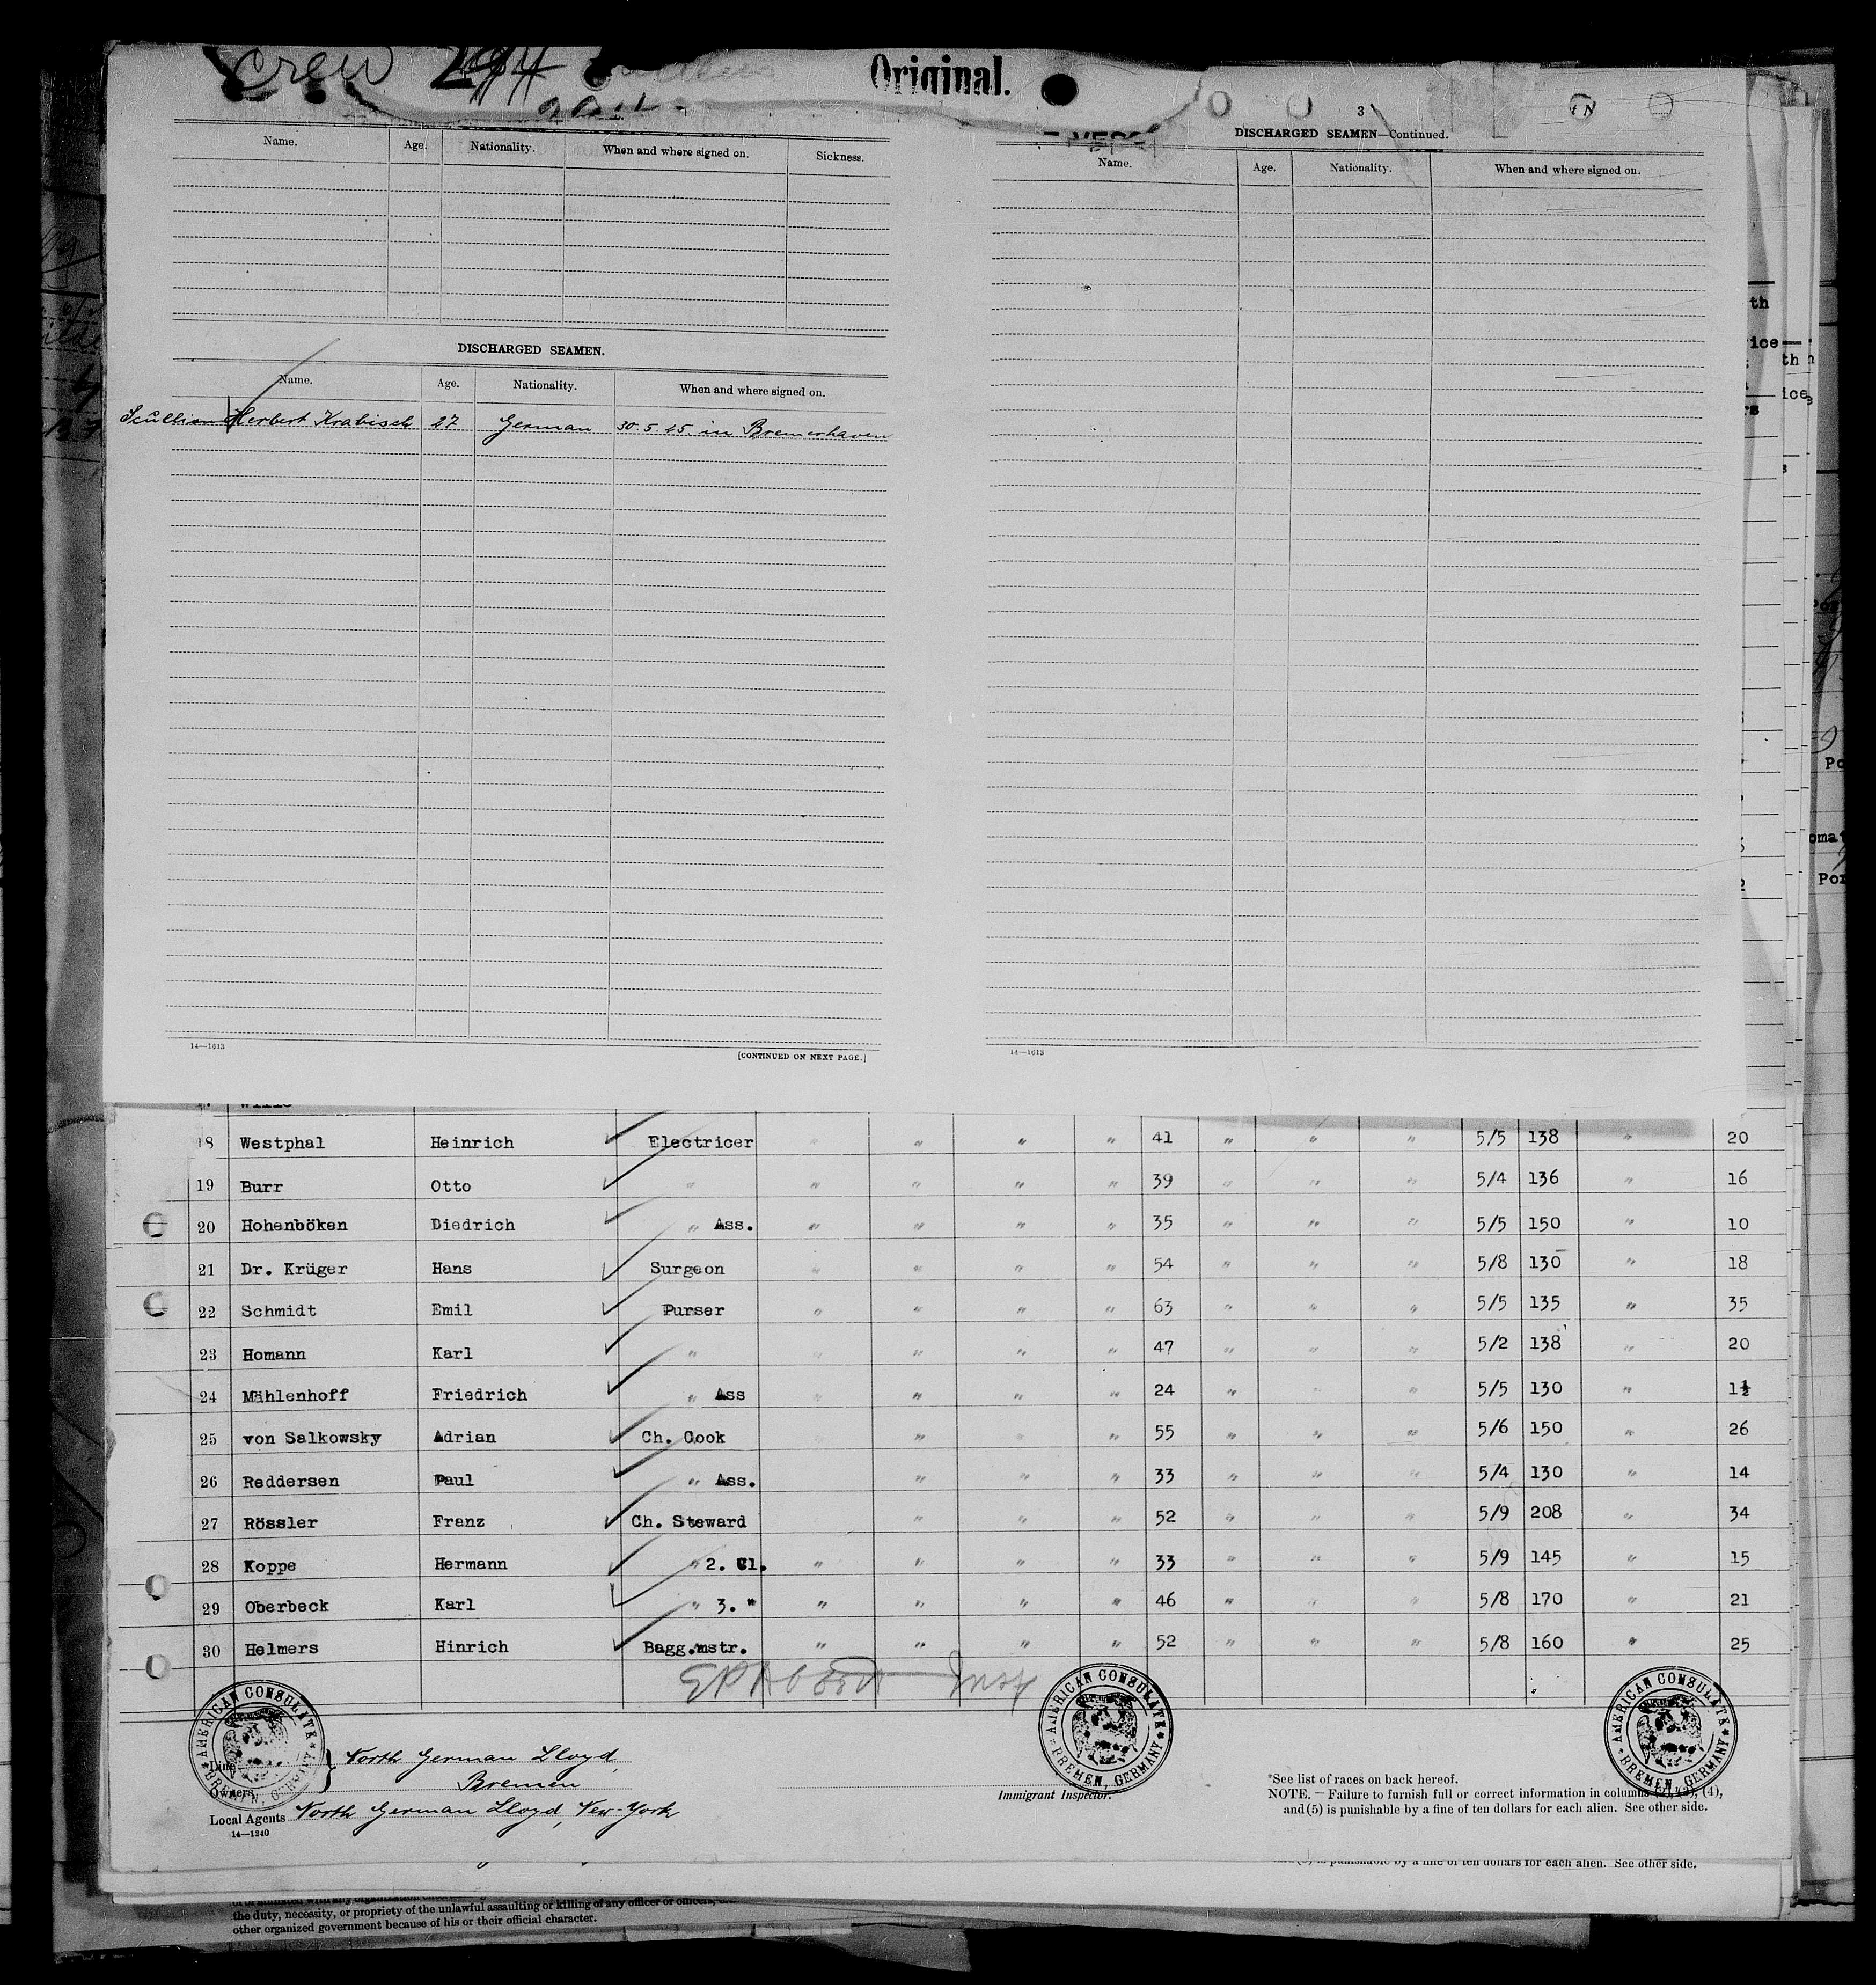 Crew
Original.
3
Name. Age. Nationality. When and where signed on. Sickness.
DISCHARGED SEAMEN.
Name. Age. Nationality. When and where signed on.
Scullion Herbert Krabisch 27 German 30.5.25. in Bremerhaven
14—1613
[CONTINUED ON NEXT PAGE.]
DISCHARGED SEAMEN—Continued.
Name. Age. Nationality. When and where signed on.
14—1613
18 Westphal Heinrich Electricer " " " " 41 " " " 5/5 138 " 20
19 Burr Otto " " " " " 39 " " " 5/4 136 " 16
20 Hohenböken Diedrich " Ass. " " " " 35 " " " 5/5 150 " 10
21 Dr. Krüger Hans Surgeon " " " " 54 " " " 5/8 130 " 18
22 Schmidt Emil Purser " " " " 63 " " " 5/5 135 " 35
23 Homann Karl " " " " " 47 " " " 5/2 138 " 20
24 Mühlenhoff Friedrich " Ass " " " " 24 " " " 5/5 130 " 1½
25 von Salkowsky Adrian Ch. Cook " " " " 55 " " " 5/6 150 " 26
26 Reddersen Paul " Ass. " " " 33 " " " 5/4 130 " 14
27 Rössler Franz Ch. Steward " " " 52 " " " 5/9 208 " 34
28 Koppe Hermann " 2. Cl. " " " " 33 " " " 5/9 145 " 15
29 Oberbeck Karl " 3. " " " " " 46 " " " 5/8 170 " 21
30 Helmers Hinrich Bagg.mstr. " " " " 52 " " " 5/8 160 " 25
AMERICAN CONSULATE BREMEN, GERMANY
AMERICAN CONSULATE BREMEN, GERMANY
AMERICAN CONSULATE BREMEN, GERMANY
Line North German Lloyd,
Owners Bremen
Local Agents North German Lloyd, New-York
14—1240
Immigrant Inspector
*See list of races on back hereof.
NOTE.—Failure to furnish full or correct information in columns (3), (4),
and (5) is punishable by a fine of ten dollars for each alien. See other side.
and (5) is punishable by a fine of ten dollars for each alien. See other side.
the duty, necessity, or propriety of the unlawful assaulting or killing of any officer or officers,
other organized government because of his or their official character.